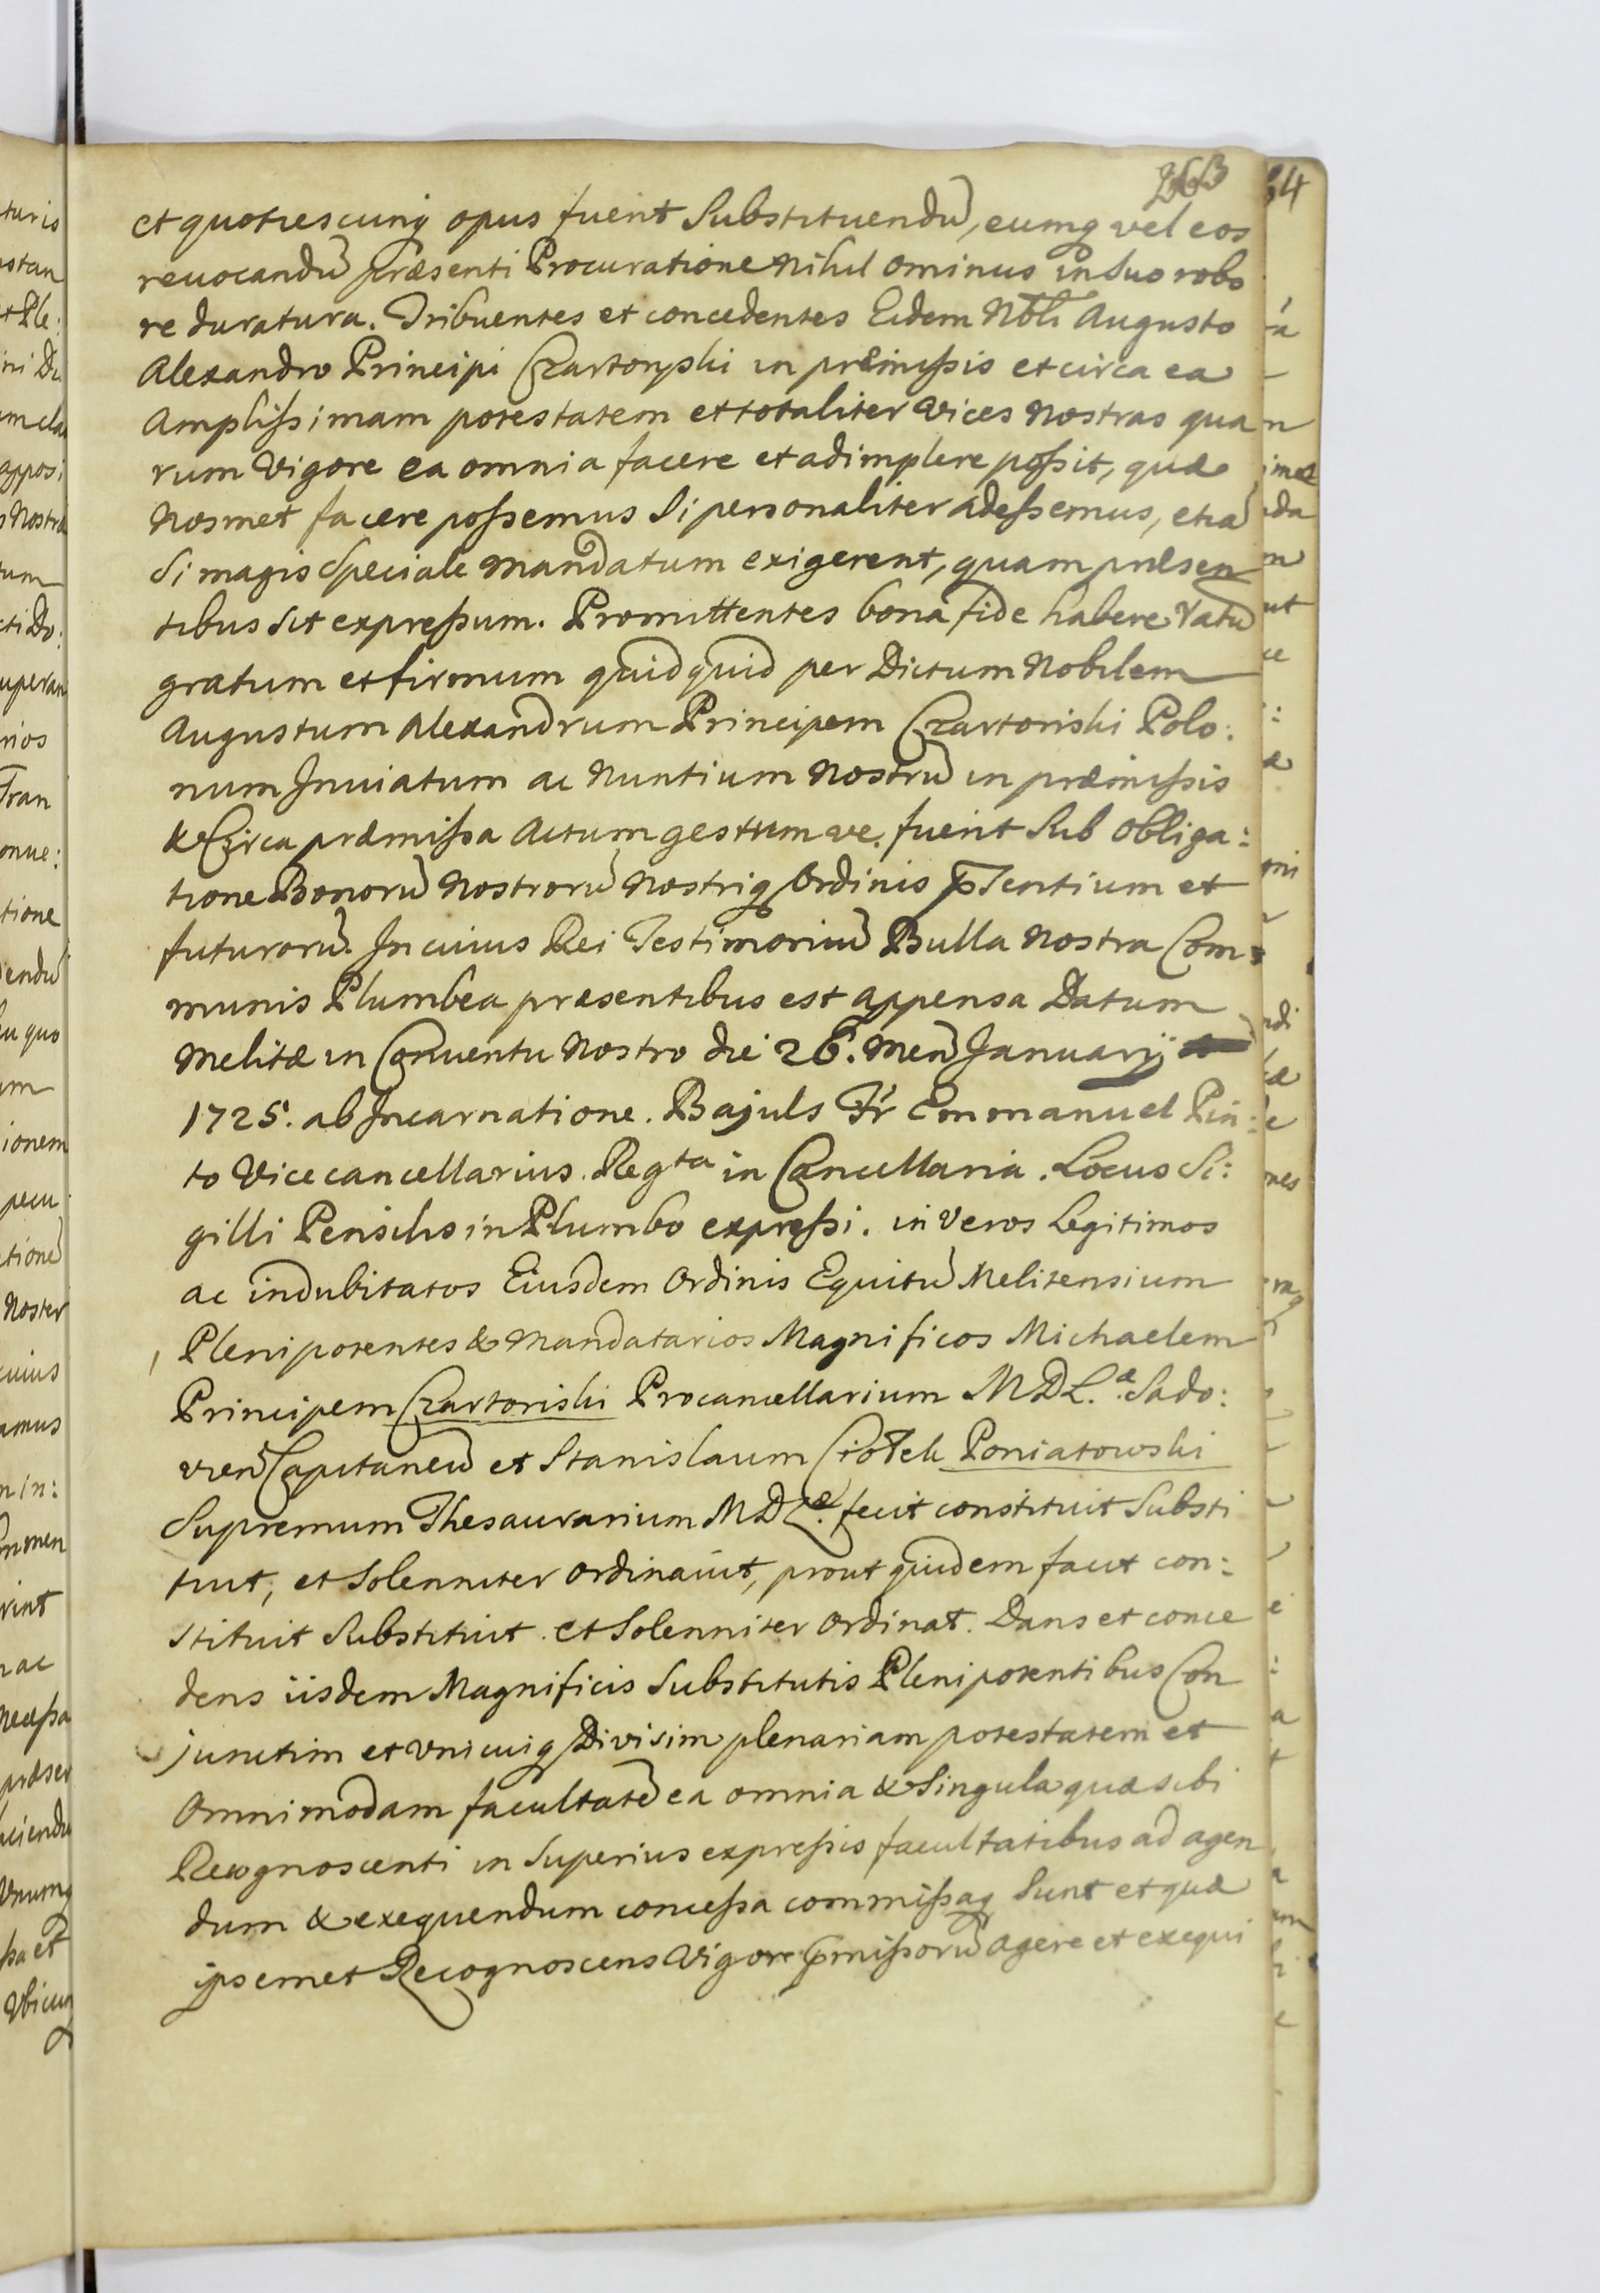 263
et quotiescunq opus fuerit Substituendũ, eumq vel eos
reuocandũ præsenti Procuratione Nihil Ominus in Suo robo
re duratura. Tribuentes et concedentes Eidem Nbli Augusto
Alexandro Principi Czartoryski in præmissis et circa ea
Amplissimam potestatem et totaliter Vices Nostras qua
rum Vigore ea omnia facere et adimplere possit, quæ
Nosmet facere possemus Si personaliter adessemus, etiã
Si magis Speciale Mandatum exigerent, quam præsen
tibus Sit expressum. Promittentes bona fide habere Ratũ
gratum et firmum quidquid per Dictum Nobilem
Augustum Alexandrum Principem Czartoriski Polo:
num Inuiatum ac Nuntium Nostrũ in præmissis
& Circa præmissa Actum gestum ve. fuerit Sub Obliga:
tione Bonorũ Nostrorũ Nostriq Ordinis p̃sentium et
futurorũ. In cuius Rei Testimoniũ Bulla Nostra Com:
munis Plumbea præsentibus est appensa Datum
Melitæ in Conuentu Nostro die 26. Meñ Januarij
1725. ab Incarnatione. Bajuls Fr Emmanuel Pin:
to Vicecancellarius. Regta in Cancellaria. Locus Si:
gilli Pensilis in Plumbo expressi. in Veros Legitimos
ac indubitatos Eiusdem Ordinis Equitũ Melitensium
Plenipotentes & Mandatarios Magnificos Michaelem
Principem Czartoriski Procancellarium M D L.æ Sado:
vien̄ Capitaneũ et Stanislaum Ciołek Poniatowski
Supremum Thesaurarium M D L.æ fecit constituit Substi
tuit, et Solenniter Ordinauit, prout quidem facit con:
stituit Substituit et Solenniter Ordinat. Dans et conce
dens iisdem Magnificis Substitutis Plenipotentibus Con
junctim et Vnicuiq Divisim plenariam potestatem et
Omnimodam facultatẽ ea omnia & Singula quæ sibi
Recognoscenti in Superius expressis facultatibus ad agen
dum & exequendum concessa commissaq Sunt et quæ
ipsemet Recognoscens Vigore p̃missorũ agere et exequi